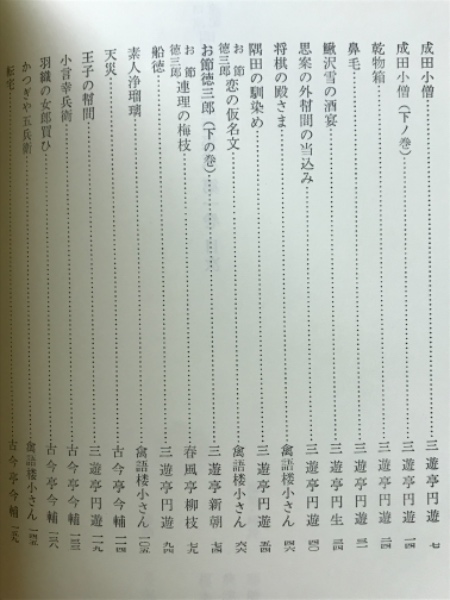 成田小僧………三遊亭円遊 七
成田小僧(下ノ巻)………三遊亭円遊 一四
乾物箱………三遊亭円遊 二四
鼻毛………三遊亭円遊 三一
鰍沢雪の酒宴………三遊亭円生 三四
思案の外幇間の当込み………三遊亭円遊 四〇
将棋の殿さま………禽語楼小さん 四六
隅田の馴染め………三遊亭円遊 五四
お節徳三郎 恋の仮名文………禽語楼小さん 六六
お節徳三郎(下の巻)………三遊亭新朝 七五
お節徳三郎 連理の梅枝………春風亭柳枝 七九
船徳………三遊亭円遊 九四
素人浄瑠璃………禽語楼小さん 一〇五
天災………古今亭今輔 一一四
王子の幇間………三遊亭円遊 一一九
小言幸兵衛………古今亭今輔 一三三
羽織の女郎買ひ………古今亭今輔 一三八
かつぎや五兵衛………禽語楼小さん 一四五
転宅………古今亭今輔